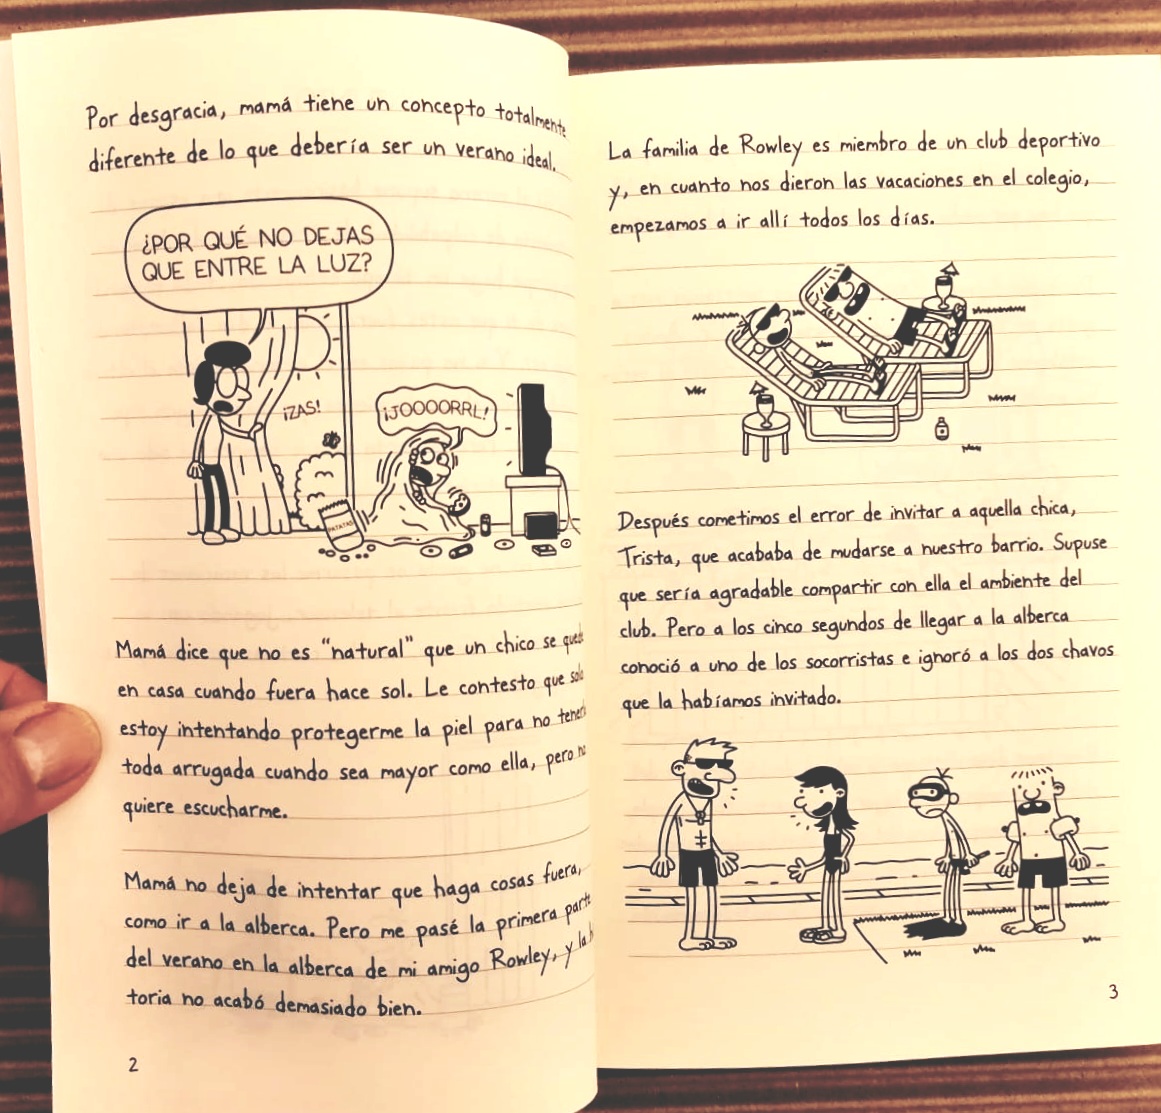 Por desgracia, mamá tiene un concepto totalmente
diferente de lo que debería ser un verano ideal.
¿POR QUÉ NO DEJAS
QUE ENTRE LA LUZ?
¡ZAS!
¡JOOOORRL!
PATATAS
Mamá dice que no es “natural” que un chico se quede
en casa cuando fuera hace sol. Le contesto que solo
estoy intentando protegerme la piel para no
toda arrugada cuando sea mayor como ella, pero no
quiere escucharme.
Mamá no deja de intentar que haga cosas fuera,
como ir a la alberca. Pero me pasé la primera parte
del verano en la alberca de mi amigo Rowley, y la
toria no acabó demasiado bien.
2
La familia de Rowley es miembro de un club deportivo
y, en cuanto nos dieron las vacaciones en el colegio,
empezamos a ir allí todos los días.
Después cometimos el error de invitar a aquella chica,
Trista, que acababa de mudarse a nuestro barrio. Supuse
que sería agradable compartir con ella el ambiente del
club. Pero a los cinco segundos de llegar a la alberca
conoció a uno de los socorristas e ignoró a los dos chavos
que la habíamos invitado.
3